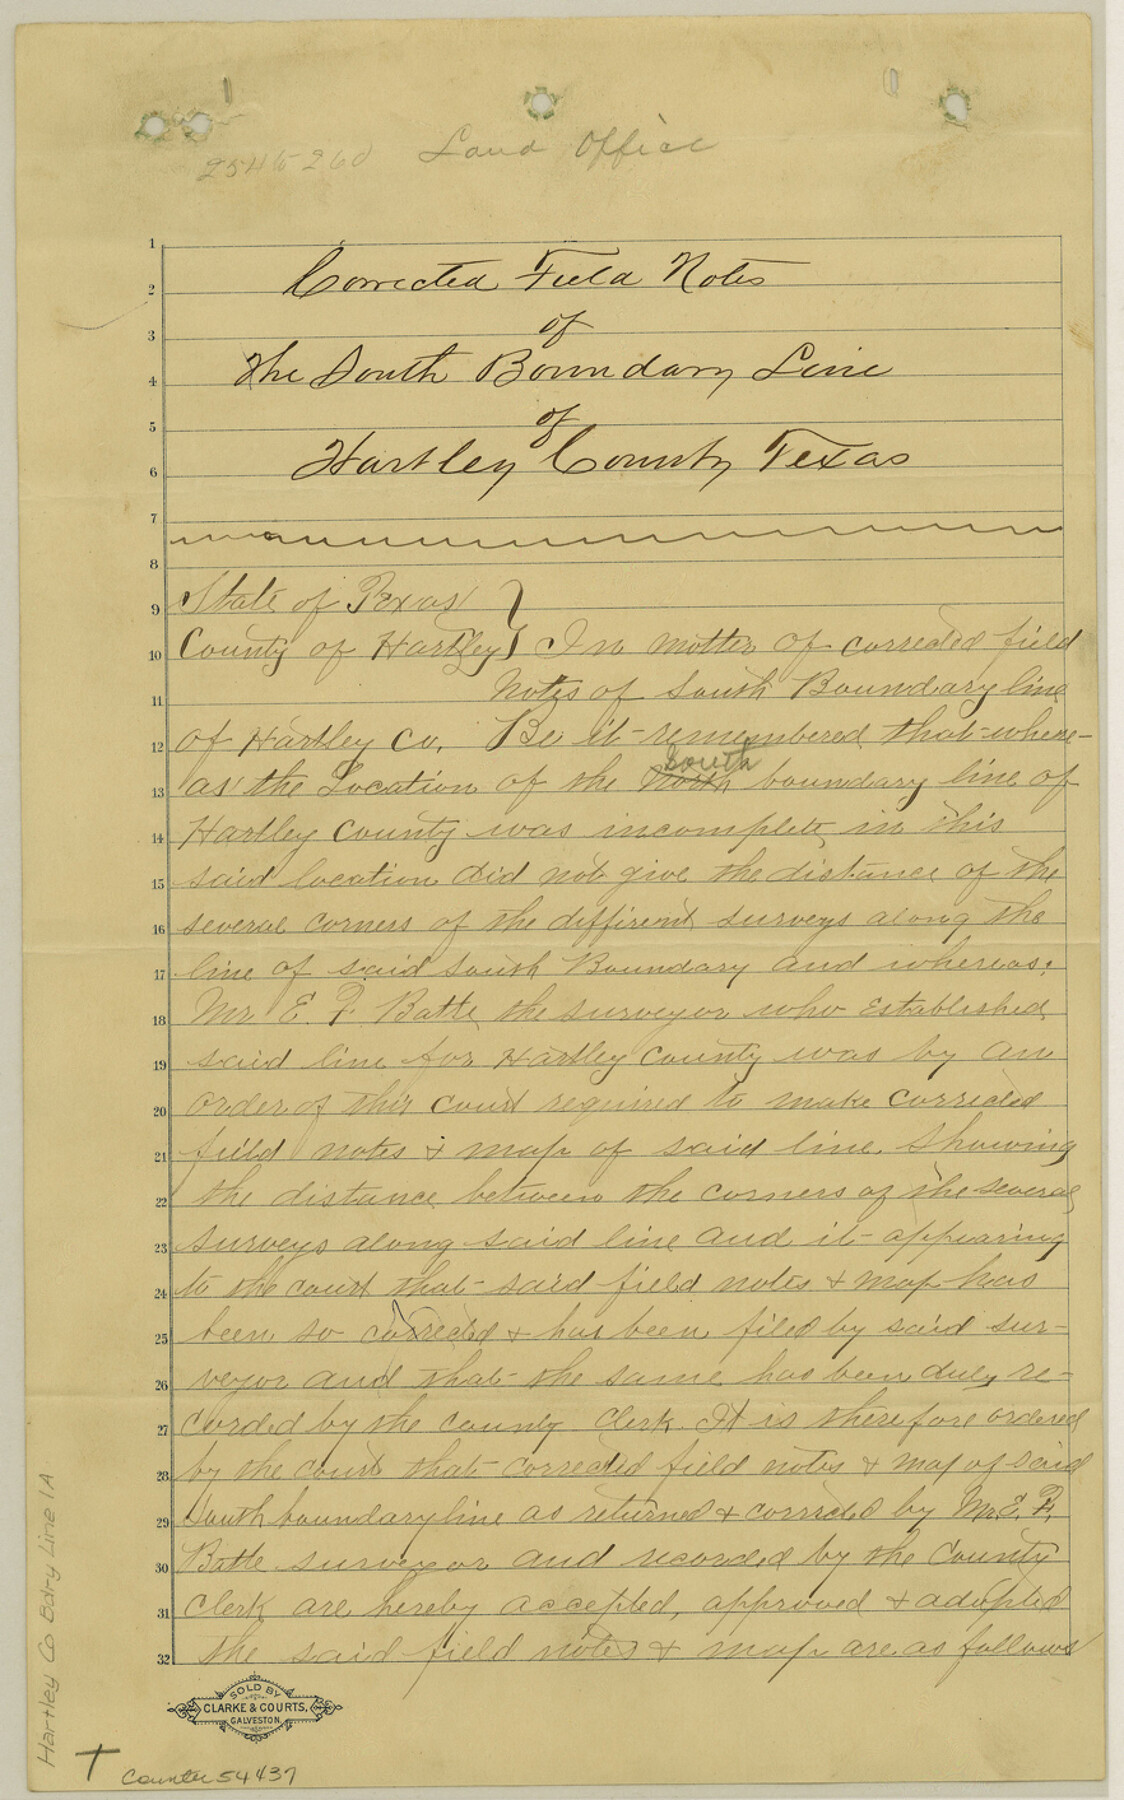 254 to 260 Land Office
Corrected Field Notes
of
The South Boundary Line
of
Hartley County Texas
State of Texas }
County of Hartley } In motter of corrected field
Notes of South Boundary line
of Hartley Co. Be it remembered that where-
as the Location of the North South boundary line of
Hartley County was incomplete in this
said location did not give the distance of the
several corners of the different surveys along the
line of said South Boundary and whereas;
Mr. E. F. Batte the surveyor who established
said line for Hartley County was by an
order of this court required to make corrected
field notes & map of said line showing
the distance between the corners of the several
surveys along said line and it appearing
to the court that said field notes & map has
been so corrected & has been filed by said sur-
veyor and that the same has been duly re-
corded by the county clerk. It is therefore ordered
by the court that corrected field notes & map of said
South boundary line as returned & corrected by Mr. E. F.
Batte surveyor and recorded by the County
Clerk are hereby accepted, approved & adopted
the said field notes & map are as follows
1
2
3
4
5
6
7
8
9
10
11
12
13
14
15
16
17
18
19
20
21
22
23
24
25
26
27
28
29
30
31
32
SOLD BY
CLARKE & COURTS,
GALVESTON.
Hartley Co Bdry Line 1A
Counter 54437